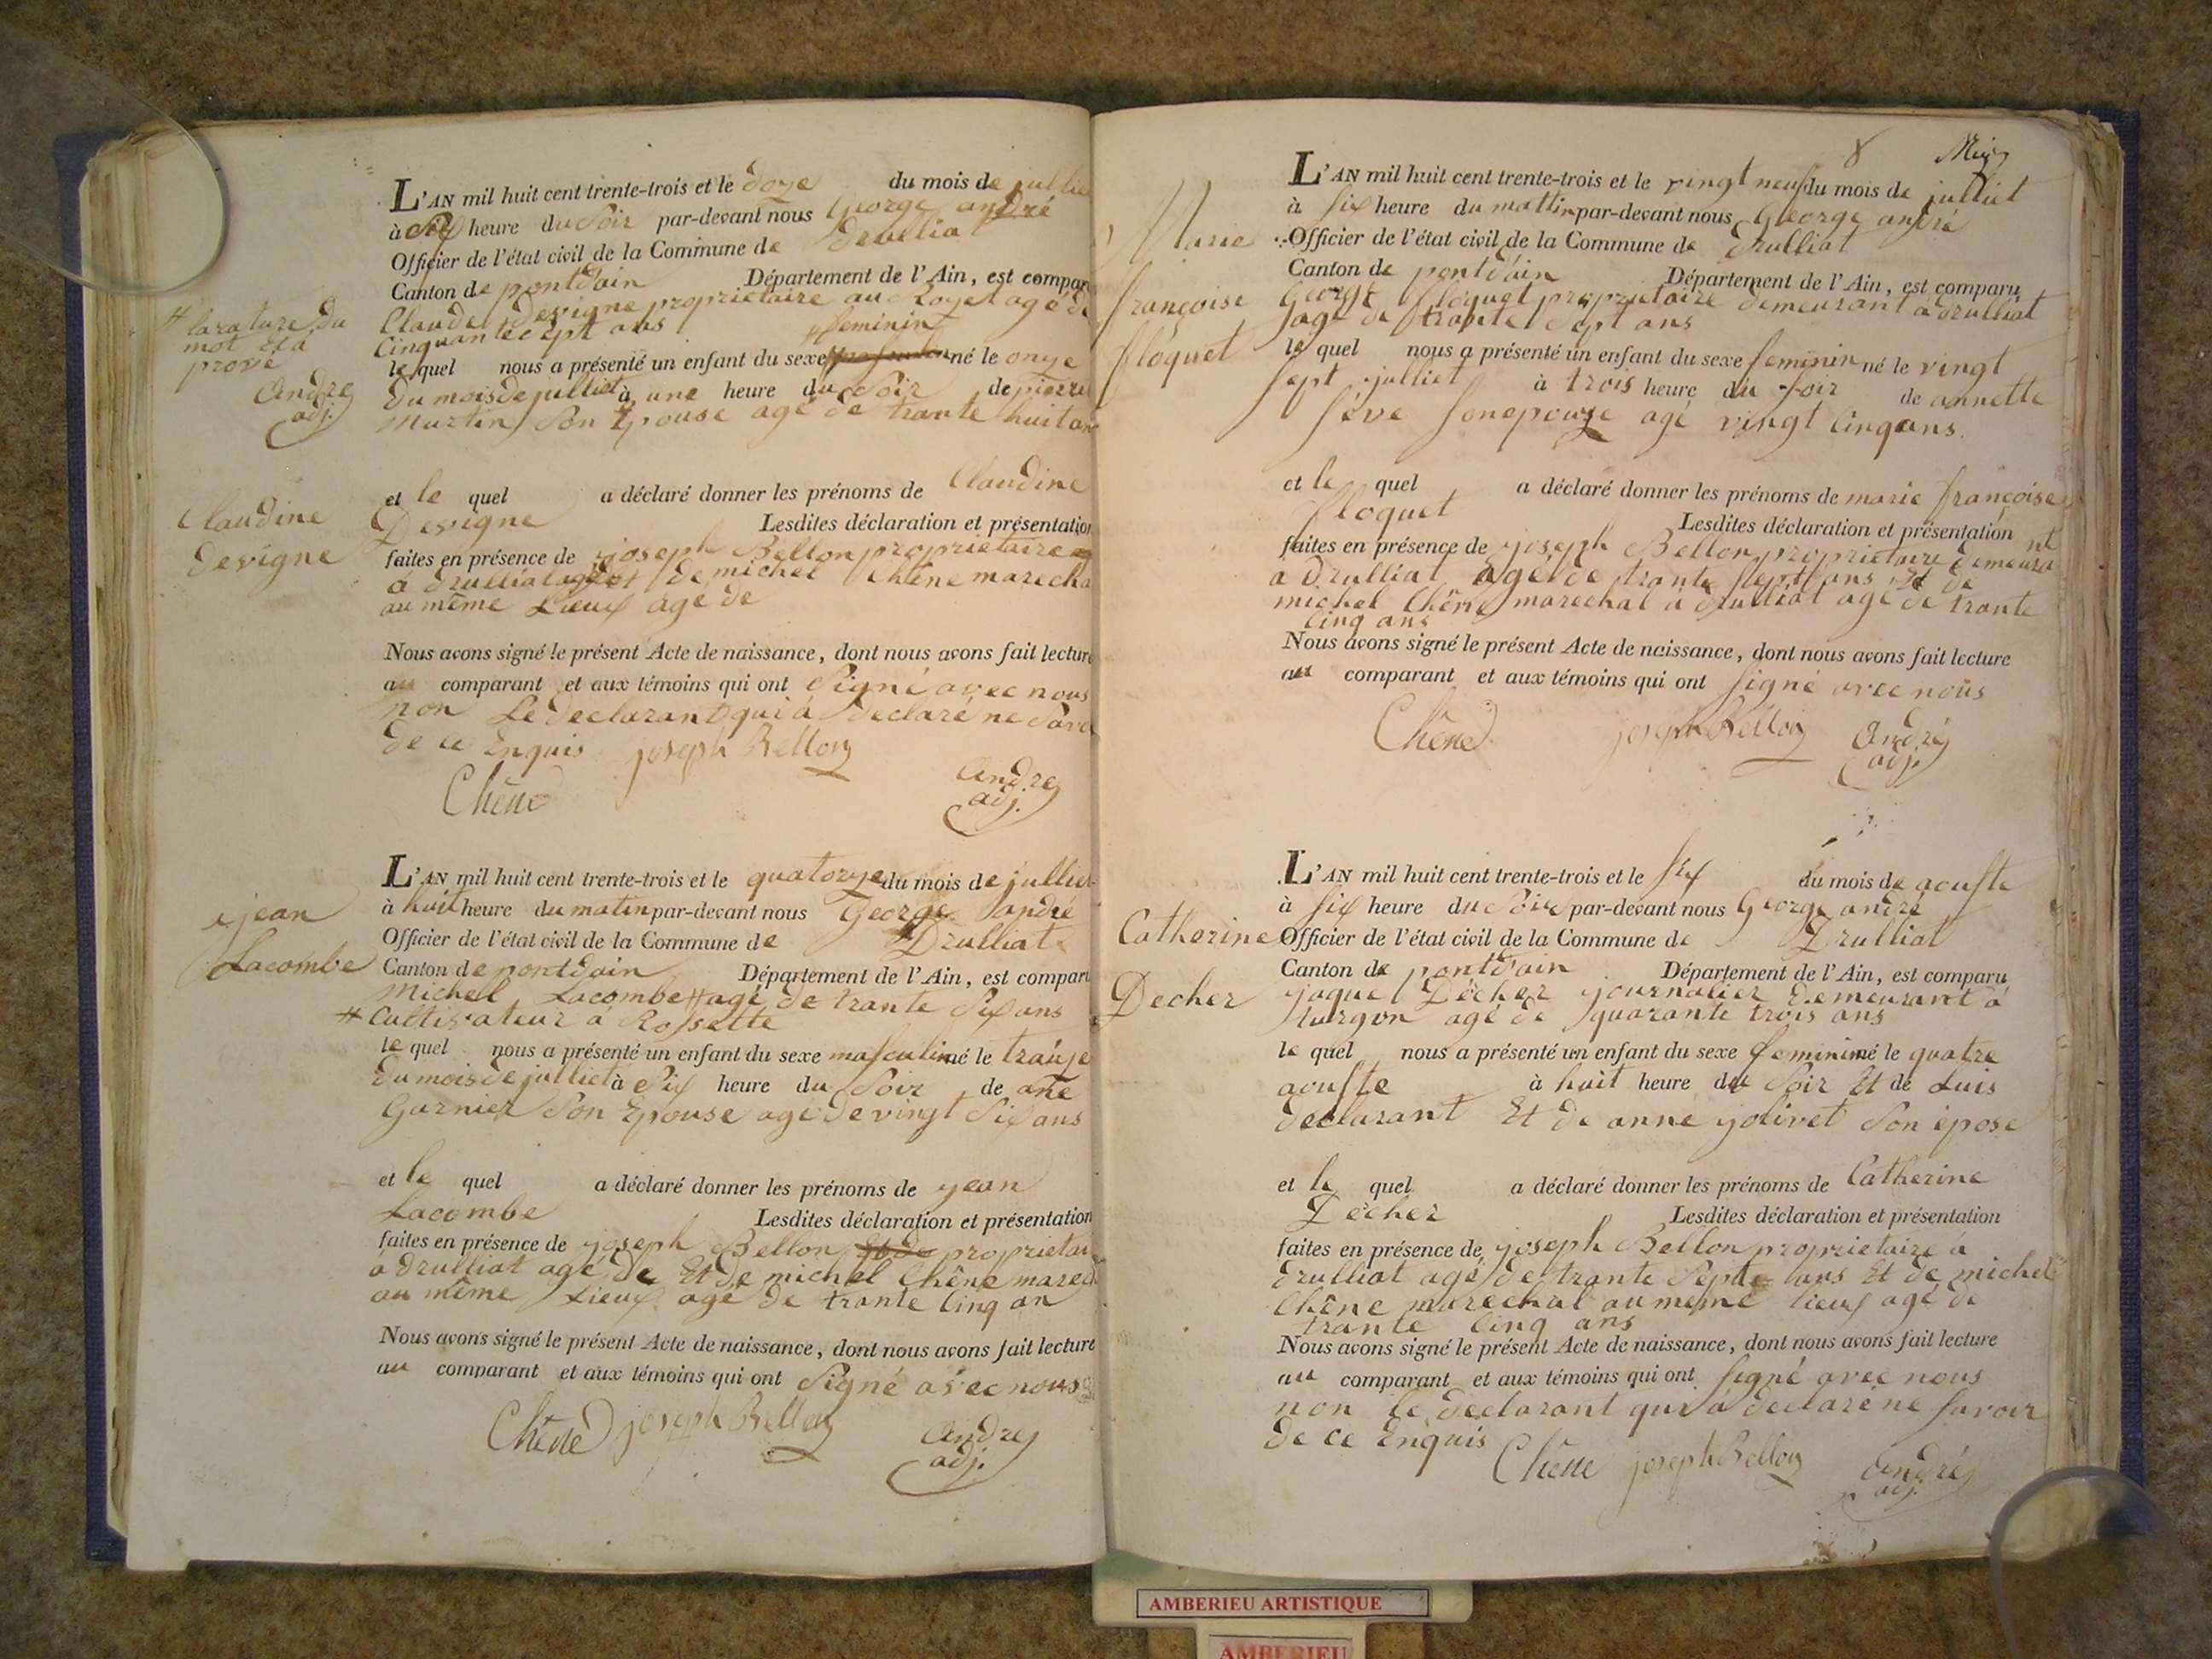 L'AN mil huit cent trente-trois et le doze du mois de jullie
à Six heure du Soir par-devant nous George andré
Officier de l'état civil de la Commune de Drulliat
Canton de pontdain Département de l'Ain, est compar
Claude Devigne proprietaire au agé de
Cinquante Sept ans
feminin
le quel nous a présenté un enfant du sexe né le onze
du mois de julliet à une heure du Soir de pierre
Martin Son Epouse agé de trante huit an
# la rature du
mot
prové
André
adj.
Claudine
Devigne
et le quel a déclaré donner les prénoms de Claudine
Devigne Lesdites déclaration et présentation
faites en présence de joseph Bellon proprietaire
à drulliat de michel Chêne marecha
au même Lieux agé de
Nous avons signé le présent Acte de naissance, dont nous avons fait lecture
au comparant et aux témoins qui ont Signé avec nous
non Le declarant qui a declaré ne Savo
de ce Enquis joseph Bellon
Chêne
André
adj.
jean
Lacombe
L'AN mil huit cent trente-trois et le quatorze du mois de julliet
à huit heure du matin par-devant nous George andré
Officier de l'état civil de la Commune de Drulliat
Canton de pontdain Département de l'Ain, est compar
Michel Lacombe # agé de trante Six ans
# Cultivateur à Rossette
le quel nous a présenté un enfant du sexe masculin né le traize
du mois de julliet à Six heure du Soir de ane
Garnier Son Epouse agé de vingt Six ans
et le quel a déclaré donner les prénoms de jean
Lacombe Lesdites déclaration et présentation
faites en présence de joseph Bellon Et de proprietai
à drulliat agé de Et de michel Chêne marech
au même Lieux agé de trante Cinq an
Nous avons signé le présent Acte de naissance, dont nous avons fait lecture
au comparant et aux témoins qui ont Signé avec nous
Chêne joseph Bellon André
adj.
8
L'AN mil huit cent trente-trois et le vingt neuf du mois de julliet
à Six heure du mattin par-devant nous George andré
Officier de l'état civil de la Commune de Drulliat
Canton de pontdain Département de l'Ain, est comparu
George floquet proprietaire demeurant à drulliat
agé de trante Sept ans
Marie
françoise
floquet
le quel nous a présenté un enfant du sexe feminin né le vingt
Sept julliet à trois heure du Soir de annette
Séve Son epouze agé vingt Cinq ans.
et le quel a déclaré donner les prénoms de marie françoise
floquet Lesdites déclaration et présentation
faites en présence de joseph Bellon proprietaire demeurant
à Drulliat agé de trante Sept ans Et de
michel Chêne marechal à drulliat agé de trante
Cinq ans
Nous avons signé le présent Acte de naissance, dont nous avons fait lecture
au comparant et aux témoins qui ont Signé avec nous
Chêne joseph Bellon André
adj.
Catherine
Decher
L'AN mil huit cent trente-trois et le Six du mois de aouste
à Six heure du Soir par-devant nous George andré
Officier de l'état civil de la Commune de Drulliat
Canton de pontdain Département de l'Ain, est comparu
jaque Decher journalier demeurant à
turgon agé de quarante trois ans
le quel nous a présenté un enfant du sexe feminin né le quatre
aouste à huit heure du Soir Et de Luis
declarant Et de anne jolivet Son épose
et le quel a déclaré donner les prénoms de Catherine
Decher Lesdites déclaration et présentation
faites en présence de joseph Bellon proprietaire à
Drulliat agé de trante Sept ans Et de michel
Chêne marechal au même lieux agé de
trante Cinq ans
Nous avons signé le présent Acte de naissance, dont nous avons fait lecture
au comparant et aux témoins qui ont Signé avec nous
non le declarant qui a declaré ne Savoir
de ce Enquis Chêne joseph Bellon André
adj.
AMBERIEU ARTISTIQUE
AMBERIEU